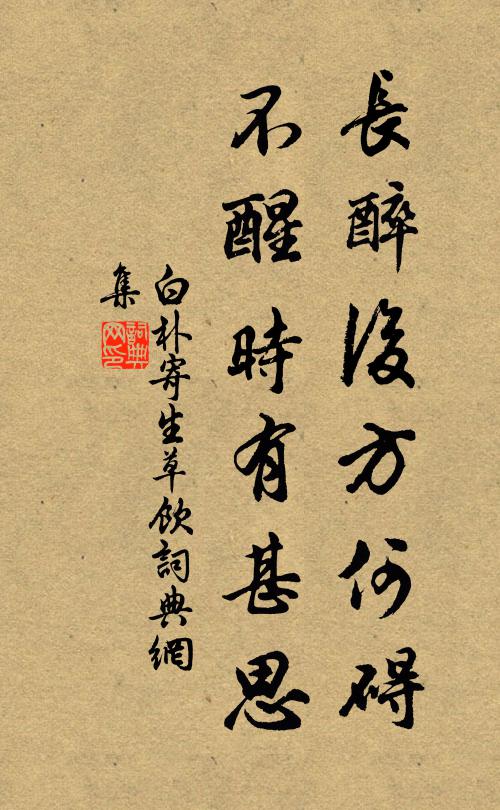 長醉後方何碍
不醒時有甚思
白朴寄生草飲詞典網
集
詞典
网印